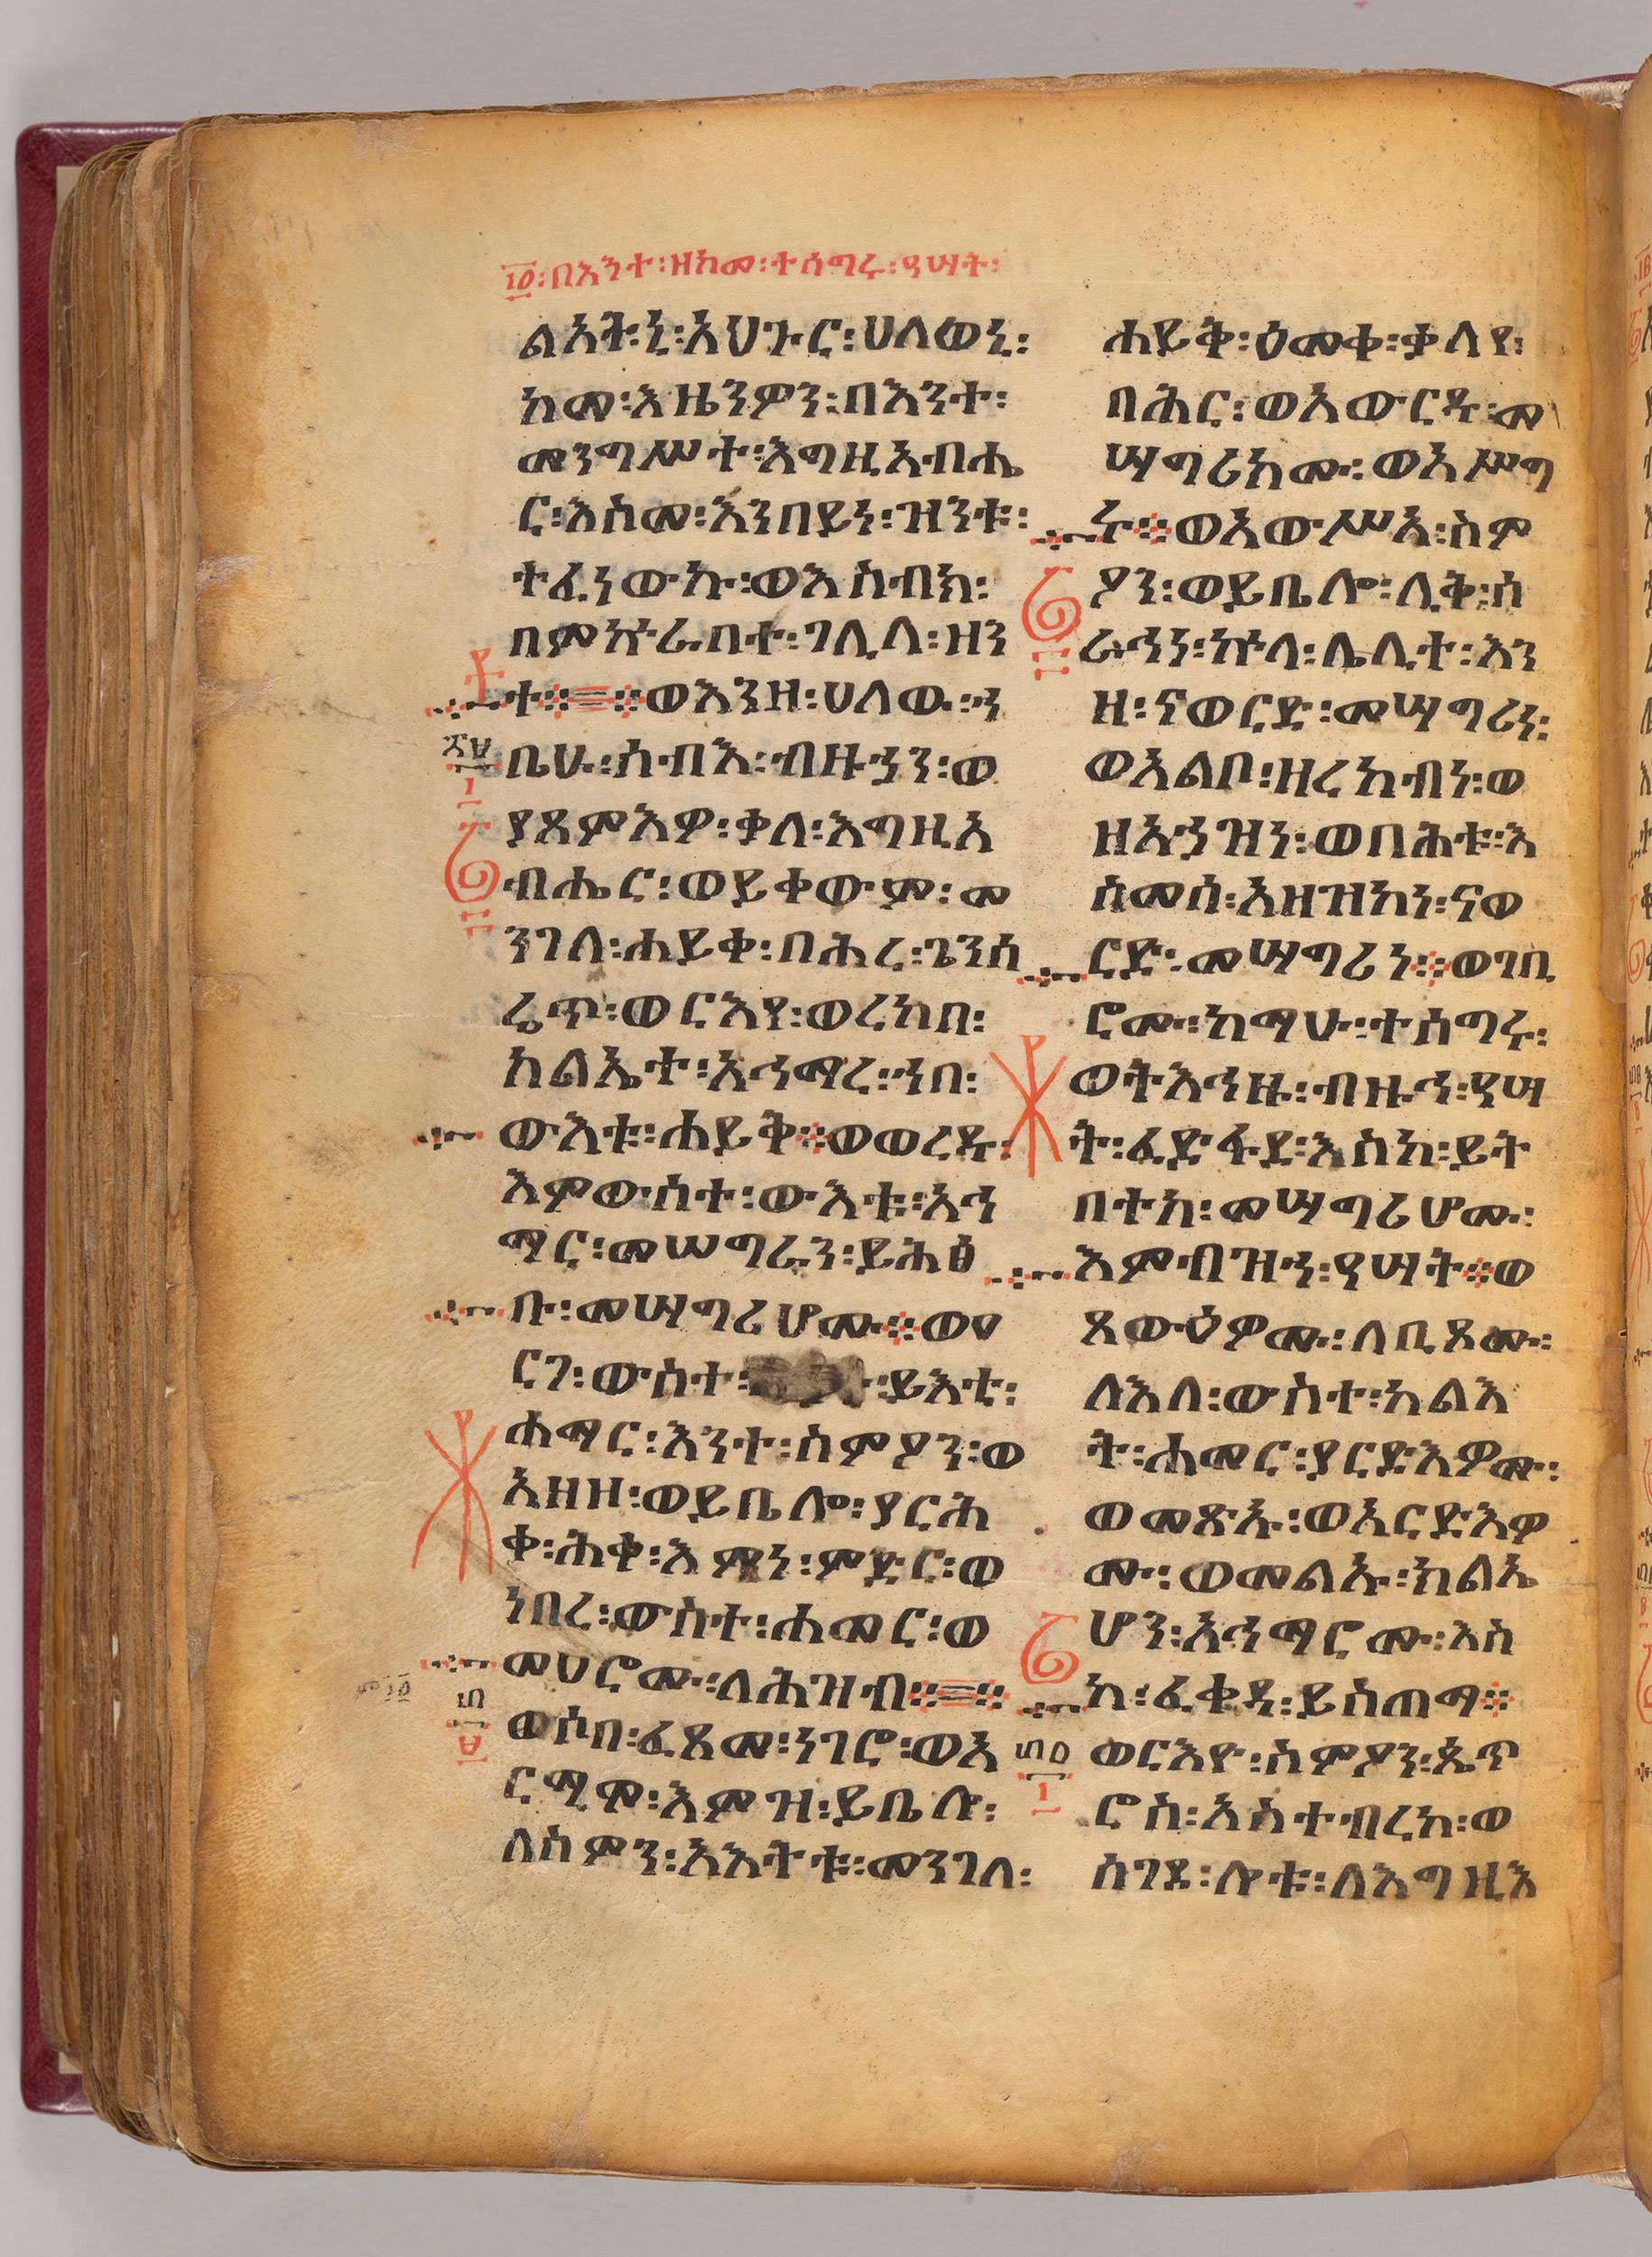 ፲፬፡በእንተ፡ዘከመ፡ተሰግሩ፡ዓሣት፡
ልእትኒ፡አህጉር፡ሀለወኒ፡
ከመ፡እዜንዎን፡በእንተ፡
መንግሥተ፡እግዚአብሔ
ር፡እስመ፡እንበይነ፡ዝንቱ፡
ተፈነውኩ፡ወእሰብክ፡
በምኵራበተ፡ገሊላ፡ዘን
ተ፨=፨ወእንዘ፡ሀለው፡ኀ
ቤሁ፡ሰብእ፡ብዙኃን፡ወ
ያጸምእዎ፡ቃለ፡እግዚአ
ብሔር፡ወይቀውም፡መ
ንገለ፡ሐይቀ፡በሕረ፡ጌንሰ
ሬጥ፡ወርእየ፡ወረከበ፡
ክልኤተ፡አኅማረ፡ኀበ፡
ውእቱ፡ሐይቅ፨ወወረዱ፡
እምውስተ፡ውእቱ፡አኅ
ማር፡መሠግራን፡ይሕፅ
ቡ፡መሣግሪሆሙ፨ወዐ
ርገ፡ውስተ፡ ፡ይእቲ፡
ሐማር፡እንተ፡ስምዖን፡ወ
አዘዘ፡ወይቤሎ፡ያርሕ
ቀ፡ሕቀ፡እምነ፡ምድር፡ወ
ነበረ፡ውስተ፡ሐመር፡ወ
መሀሮሙ፡ለሕዝብ፨=፨
ወሶበ፡ፈጸመ፡ነገሮ፡ወአ
ርማመ፡እምዝ፡ይቤሎ፡
ለስምን፡አእትቱ፡መንገለ፡
ሐይቅ፡ዕመቀ፡ቃላየ፡
በሕር፡ወአውርዱ፡መ
ሣግሪክሙ፡ወአሥግ
ሩ፨ወአውሥአ፡ስም
ዖን፡ወይቤሎ፡ሊቅ፡ሰ
ራኅነ፡ኵላ፡ሌሊተ፡እን
ዘ፡ናወርድ፡መሣግሪነ፡
ወአልቦ፡ዘረከብነ፡ወ
ዘአኃዝነ፡ወበሕቱ፡እ
ስመሰ፡አዘዝከነ፡ናወ
ርድ፡መሣግሪነ፨ወገቢ
ሮሙ፡ከማሁ፡ተሰግሩ፡
ወትእኅዙ፡ብዙኅ፡ዓሣ
ት፡ፈድፋደ፡እስከ፡ይት
በተክ፡መሣግሪሆሙ፡
እምብዝኀ፡ዓሣት፨ወ
ጸውዕዎሙ፡ለቢጾሙ፡
ለእለ፡ውስተ፡ካልእ
ት፡ሐመር፡ያርድእዎሙ፡
ወመጽኡ፡ወአርድእዎ
ሙ፡ወመልኡ፡ክልኤ
ሆን፡አኅማሮሙ፡እስ
ከ፡ፈቀዲ፡ይስጠማ፨
ወርእዮ፡ስምዖን፡ጴጥ
ሮስ፡አስተብረከ፡ወ
ሰገደ፡ሎቱ፡ለእግዚእ